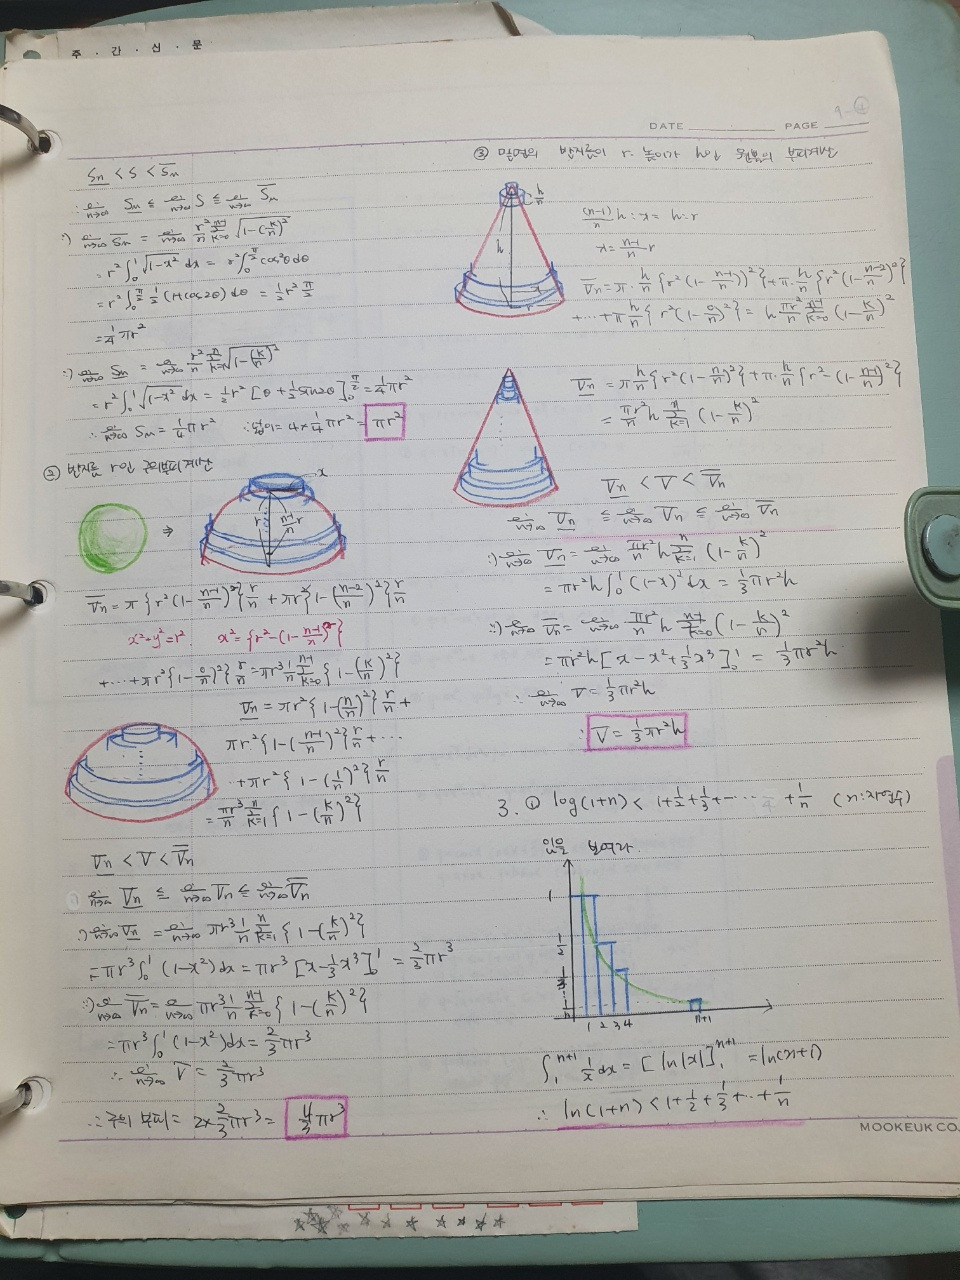 주 · 간 · 신 · 문
DATE
PAGE
9-④
S̲n < S < S̅n
∴ lim n→∞ S̲n ≤ lim n→∞ S ≤ lim n→∞ S̅n
i) lim n→∞ S̅n = lim n→∞ r²/n Σ(k=0, n-1) √(1-(k/n)²)
= r² ∫₀¹ √(1-x²) dx = r² ∫₀^(π/2) cos²θ dθ
= r² ∫₀^(π/2) 1/2 (1+cos2θ) dθ = 1/2 r² π/2
= 1/4 πr²
ii) lim n→∞ S̲n = lim n→∞ r²/n Σ(k=1, n) √(1-(k/n)²)
= r² ∫₀¹ √(1-x²) dx = 1/2 r² [θ + 1/2 sin2θ]₀^(π/2) = 1/4 πr²
∴ lim n→∞ Sn = 1/4 πr² ∴ 넓이 = 4×1/4 πr² = πr²
② 반지름 r인 구의 부피계산
x
r
n-1/n r
⇒
V̅n = π{r²(1-(n-1/n)²}r/n + πr²{1-(n-2/n)²}r/n
x²+y²=r² x²={r²-(1-n-1/n)²r}
+⋯+πr²{1-(0/n)²}r/n = πr³ 1/n Σ(k=0, n-1){1-(k/n)²}
V̲n = πr²{1-(n/n)²}r/n +
πr²{1-(n-1/n)²}r/n + ⋯
⋯+πr²{1-(1/n)²}r/n
= πr³/n Σ(k=1, n){1-(k/n)²}
V̲n < V < V̅n
lim n→∞ V̲n ≤ lim n→∞ Vn ≤ lim n→∞ V̅n
i) lim n→∞ V̲n = lim n→∞ πr³ 1/n Σ(k=1, n){1-(k/n)²}
= πr³ ∫₀¹ (1-x²) dx = πr³ [x-1/3 x³]₀¹ = 2/3 πr³
ii) lim n→∞ V̅n = lim n→∞ πr³ 1/n Σ(k=0, n-1){1-(k/n)²}
= πr³ ∫₀¹ (1-x²) dx = 2/3 πr³
∴ lim n→∞ V = 2/3 πr³
∴ 구의 부피 = 2×2/3 πr³ = 4/3 πr³
③ 밑면의 반지름이 r, 높이가 h인 원뿔의 부피계산
h/n
h
x
r
(n-1)/n h : x = h : r
x = n-1/n r
V̅n = π·h/n{r²(1-(n-1/n))²}+π·h/n{r²(1-n-2/n)²}
+⋯+π h/n{r²(1-0/n)²} = h πr²/n Σ(k=0, n-1) (1-k/n)²
V̲n = π h/n{r²(1-n/n)²}+π·h/n{r²-(1-n-1/n)²}
= πr²/n h Σ(k=1, n) (1-k/n)²
V̲n < V < V̅n
lim n→∞ V̲n ≤ lim n→∞ Vn ≤ lim n→∞ V̅n
i) lim n→∞ V̲n = lim n→∞ πr²/n h Σ(k=1, n) (1-k/n)²
= πr²h ∫₀¹ (1-x)² dx = 1/3 πr²h
ii) lim n→∞ V̅n = lim n→∞ πr²/n h Σ(k=0, n-1) (1-k/n)²
= πr²h [x-x²+1/3 x³]₀¹ = 1/3 πr²h
∴ lim n→∞ V = 1/3 πr²h
∴ V = 1/3 πr²h
3. ① log(1+n) < 1+1/2+1/3+⋯ +1/n (n:자연수)
임을 보여라.
1
1/2
1/3
1/n
1 2 3 4 n+1
∫₁^(n+1) 1/x dx = [ln|x|]₁^(n+1) = ln(n+1)
∴ ln(1+n) < 1+1/2+1/3+⋯+1/n
MOOKEUK CO.